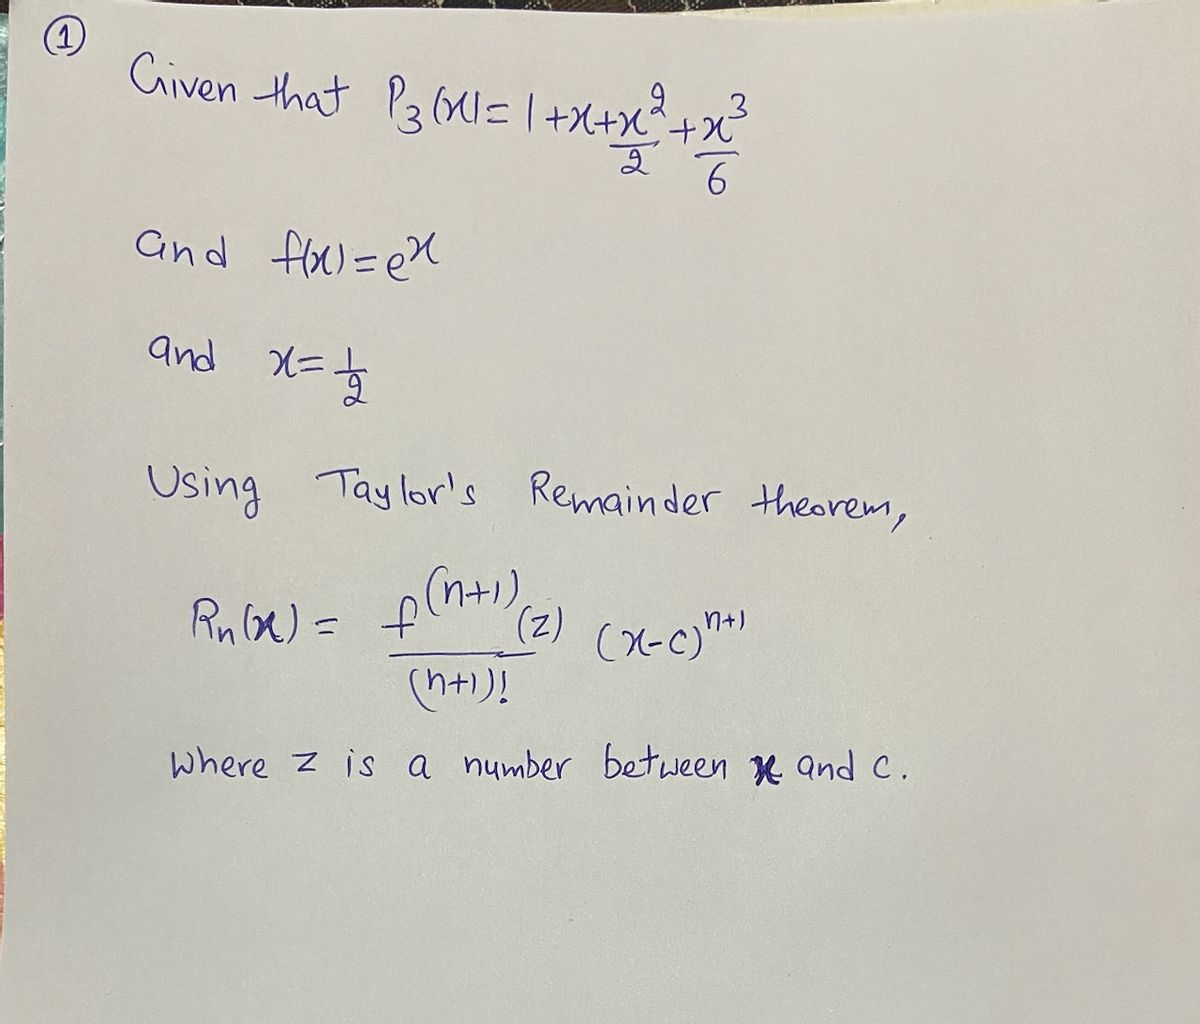 ①
Given that P₃(x)= 1+x+x²/2+x³/6
and f(x)=eˣ
and x=1/2
Using Taylor's Remainder theorem,
Rn(x) = f⁽ⁿ⁺¹⁾(z)/(n+1)! (x-c)ⁿ⁺¹
where z is a number between x and c.